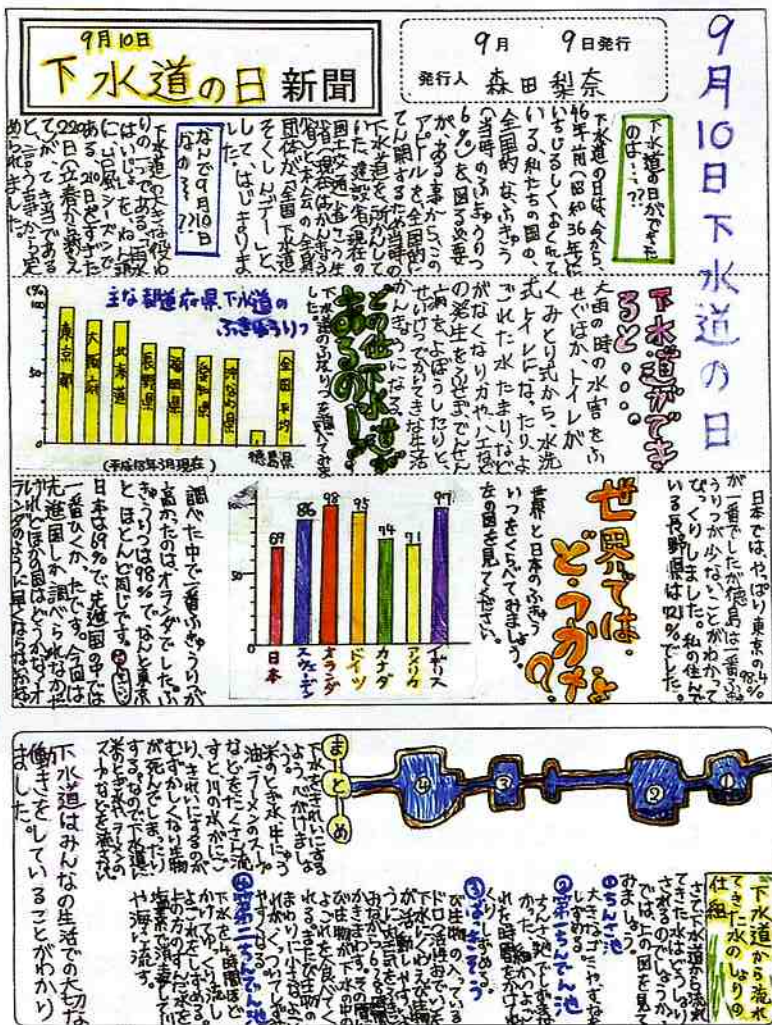 9月10日
下水道の日 新聞
9月 9日発行
発行人 森田梨奈
9月10日下水道の日
下水道の日ができた
のは…??
下水道の日は、今から、
46年前(昭和36年)に
いちじるしくおくれて
いる、私たちの国の、
全国的な、ふきゅう
(当時のふきゅうりつ
6%)を図る必要
がある事から、この
アピールを、全国的に
てん開するため当時の
下水道を、所かんして
いた、建設省(現在の
国土交通省)、こう生
団体が「全国下水道
そくしんデー」と
して、はじまりま
した。
なんで9月10日
なの〜??
下水道の大きな役わ
りの一つである「雨水
はいじょ」をねん頭
に、台風シーズンで
ある 210日をすぎた
220日(立春から数え
て)がてき当である
と、言う事から定
められました。
下水道ができ
ると・・・・
大雨の時の水害をふ
せぐほか、トイレが
くみとり式から、水洗
式トイレになったりよ
ごれた水たまりなど
がなくなりカやハエなど
の発生をふせぎでんせん
病をよぼうしたりと、
せいけつでかいてきな生活
かんきょうになる。
どの位下水道が
あるのし?
下水道のふきゅうりつを調べてみま
した。
主な都道府県下水道の
ふきゅうりつ
(%)
100
50
0
東京都
大阪府
北海道
長野県
福岡県
愛知県
徳島県
全国平均
(平成18年3月現在)
日本では、やっぱり東京の98.4%
が一番でしたが徳島は一番ふきゅ
うりつが少ないことがわかって
びっくりしました。私の住んで
いる長野県は72.1%でした。
世界では、
どうかな?
世界と日本のふきゅう
りつをくらべてみましょう。
左の図を見てください。
100
50
69
86
98
95
74
71
97
日本
スウェーデン
オランダ
ドイツ
カナダ
アメリカ
イギリス
調べた中で一番ふきゅうりつが
高かったのは、オランダでした。ふ
きゅうりつは98%で、なんと東京
と、ほとんど同じです。
日本は69%で、先進国の中では
一番ひくかったです。今回は
先進国しか調べられなかった
けれどほかの国はどうかな?オ
ランダのように早くなればいいな。
①
②
③
④
下水道から流れ
てきた水のしょりの
仕組
さて下水道から流れ
てきた水はどうしょり
されるのでしょうか。
では、上の図を見て
みましょう。
①ちんさ池
大きなゴミやすなを
②第一ちんでん池
ちんさ池でしずまな
かった、細かいよご
れを時間をかけて
しずめる。
③ばっきそう
び生物の入っている
ドロ(活性おでい)を
下水にくわえび生物
が活動しやすいよ
うに空気をふきこ
みながら6〜8時間
かきまわす。その間に
び生物が下水の中の
よごれを食べてく
れるまたび生物の
まわりに小さなよご
れがくっついてしずみ
やすくなる。
④第二ちんでん池
下水を4時間ほど
かけてゆっくり流し
よごれをしずめる。
上の方のすんだ水を
塩素で消毒して川
や海に流す。
まとめ
下水をきれいにする
よう心がけましょ
う。
米のとぎ水、牛にゅう
油、ラーメンのスープ
などをたくさん流
すと川の水がにご
り、きれいにするのが
むずかしくなり生物
が死んでしまったり
する。なので下水道に
米のとぎ水やラーメンの
スープなどを流さない
下水道はみんなの生活での大切な
働きをしていることがわかり
ました。